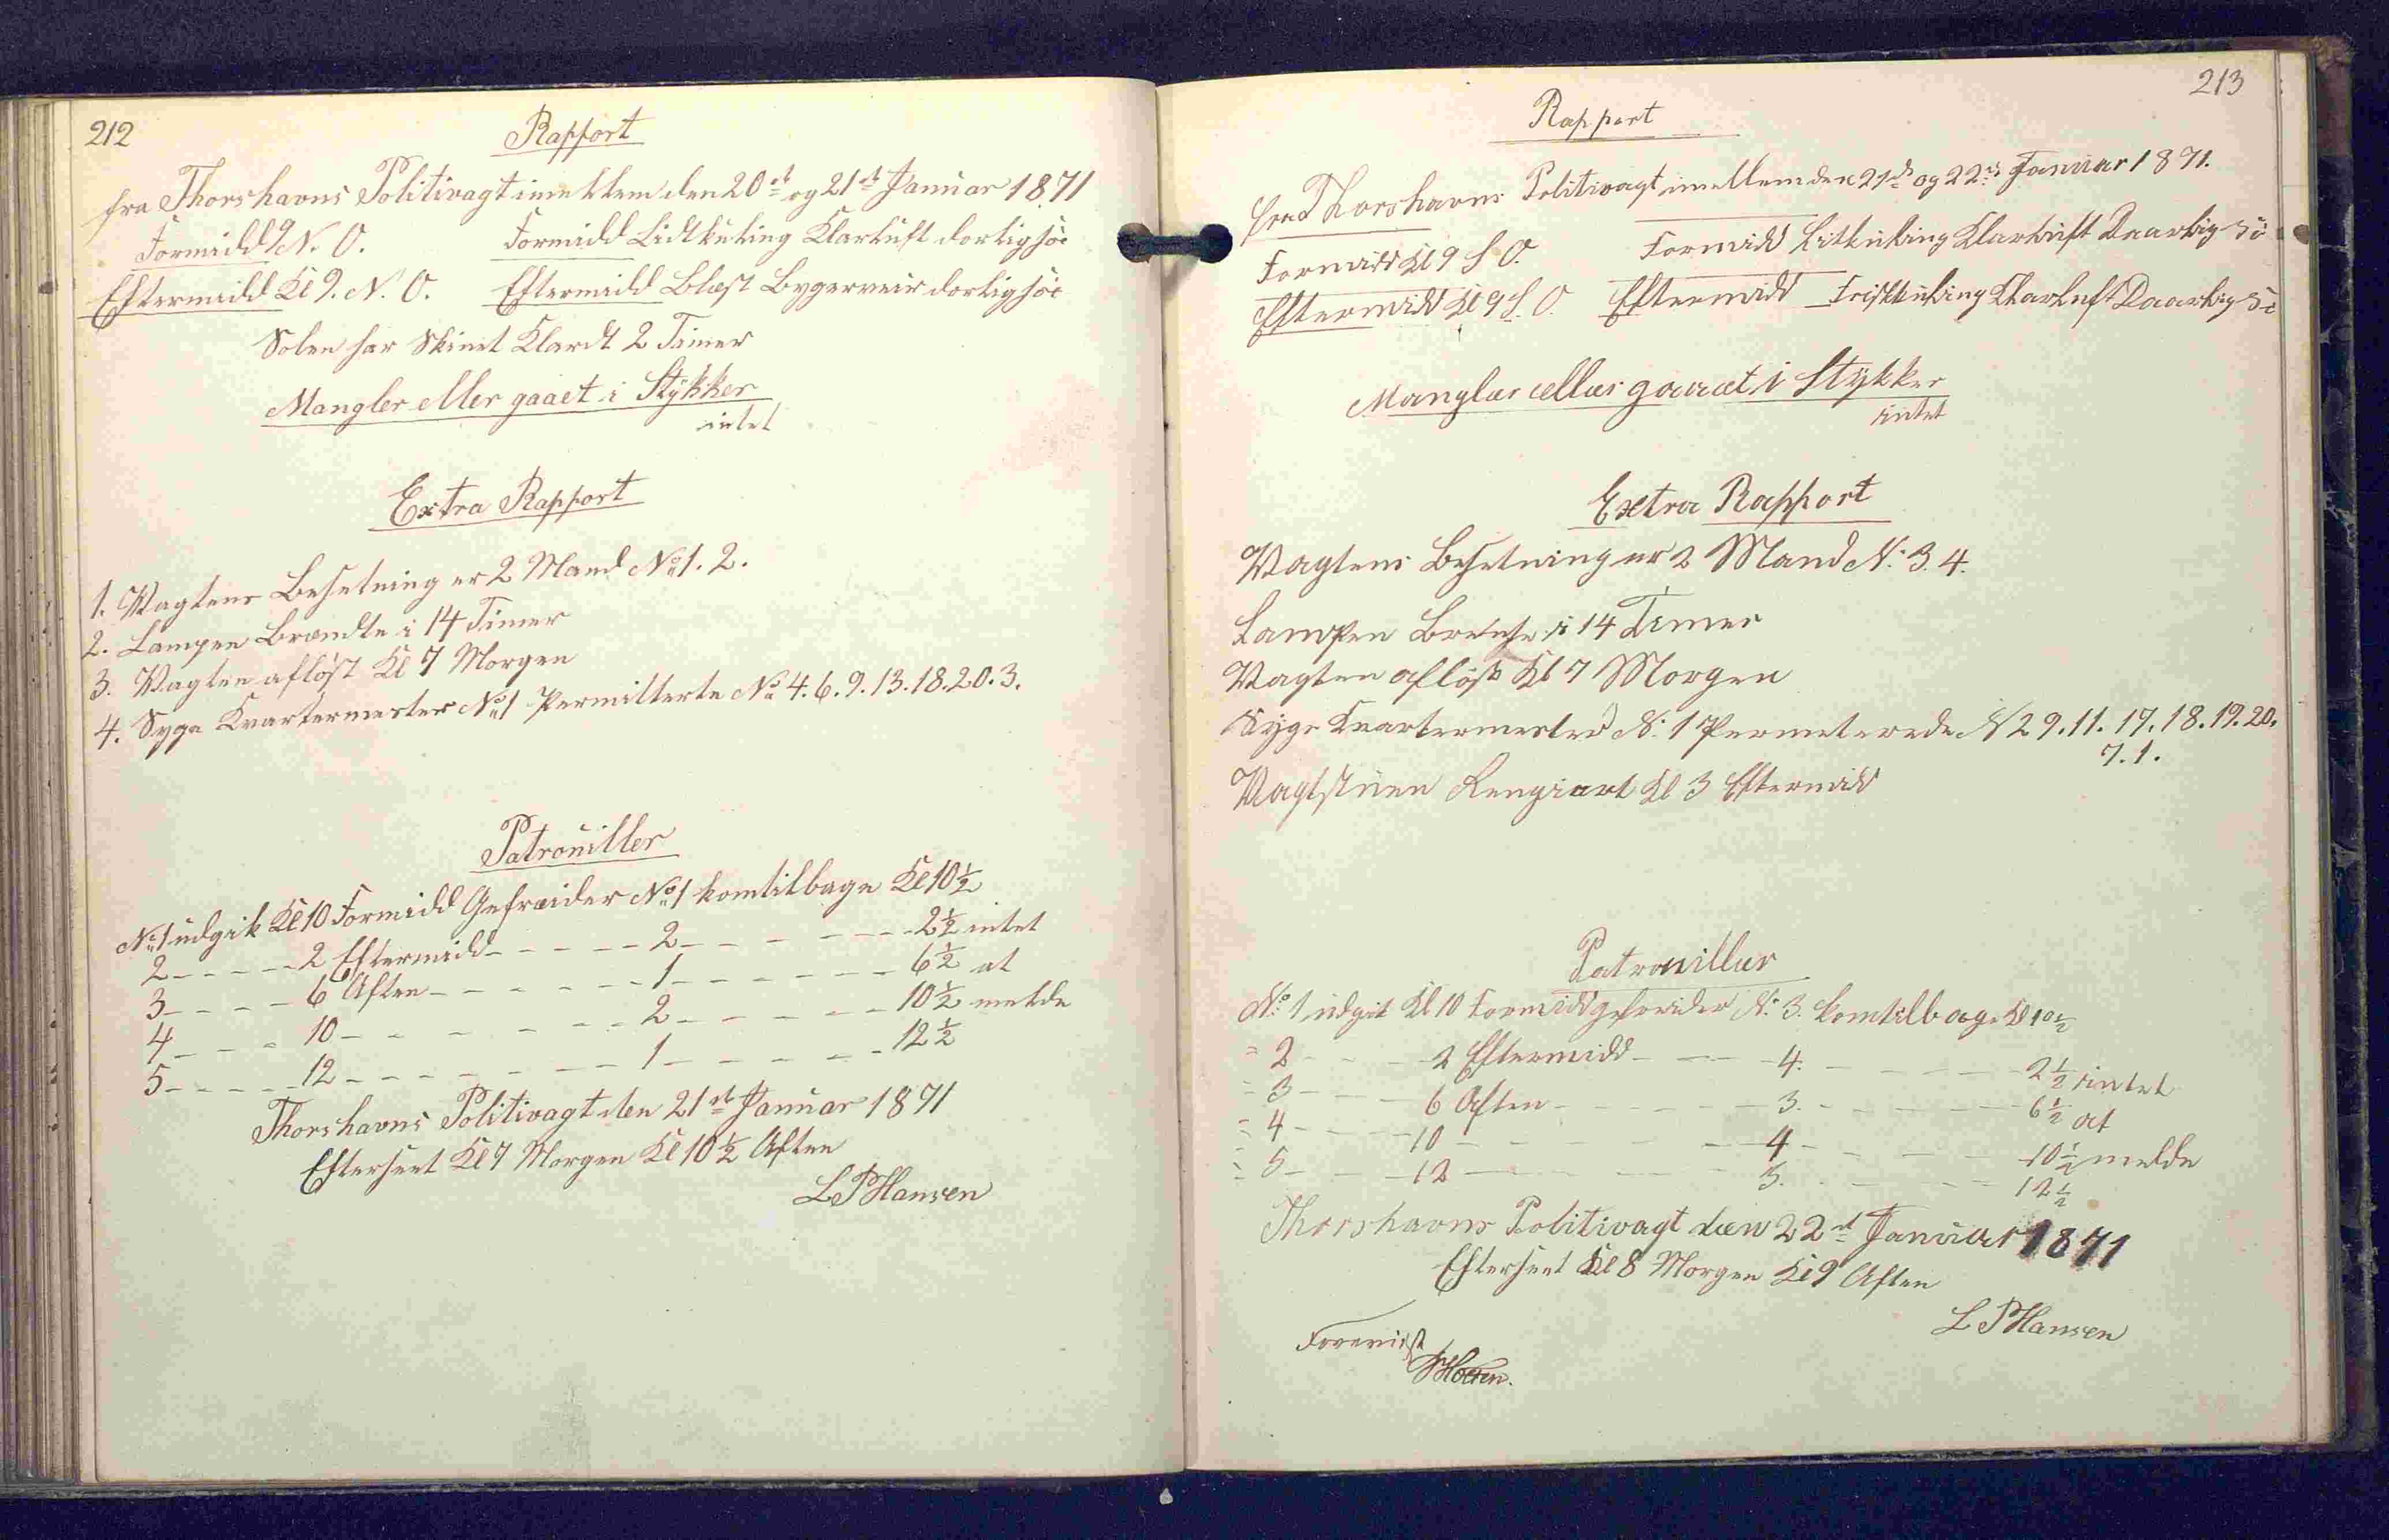 212
Rapport
fra Thorshavns Politivagt imellem den 20de og 21de Januar 1871
Formidd 9 N. O. Formidd Lidtkuling Klarluft dorligsöe
Eftermidd Kl 9. N. O. Eftermidd Blæst Bygerveir dorligsöe
Solen har Skinet Klardt 2 Timer
Mangler eller gaaet i Stykker
intet
Extra Rapport
1. Vagtens Besetning er 2 Mand No 1. 2.
2. Lampen Brændte i 14 Timer
3. Vagten aflöst Kl 7 Morgen
4. Syge Kvartermester No 1 Permitterte No 4. 6. 9. 13. 18. 20. 3.
Patrouiller
No 1 udgik Kl 10 Formidd Gefreider No 1 kom tilbage Kl 10½
2 - - - - - 2 Eftermidd - - - - - 2 - - - - - - 2½ intet
3 - - - - - 6 Aften - - - - - 1 - - - - - - 6½ at
4 - - - 10 - - - - - - - 2 - - - - - - 10½ melde
5 - - - - - 12 - - - - - - - 1 - - - - - - 12½
Thorshavns Politivagt den 21de Januar 1871
Efterseet Kl 7 Morgen Kl 10½ Aften
L P Hansen
213
Rapport
fra Thorshavns Politivagt imellem den 21de og 22de Januar 1871.
Formidd Kl 9 S O. Formidd Litkuling Klarluft Daarlig Sö
Eftermidd Kl 9 S. O. Eftermidd Friskkuling Klarluft Daarlig Sö
Manglær ællær gaaæt i Stykker
intet
Extra Rapport
Vagtens Besetning er 2 Mand N: 3. 4.
Lampen i 14 Timer
Vagten aflöst Kl 7 Morgen
Syge Kvartermester N: 1 Permeterede N 2 9. 11. 17. 18. 19. 20.
7. 1.
Vagtstuen Rengiort Kl 3 Eftermidd
Patrouillær
No 1 udgik Kl 10 Formidd gefreider N: 3. komtilbage Kl 10½
= 2 - - - 2 Eftermidd - - - 4. - - - - 2½ intet
= 3 - - - 6 Aften - - - - 3. - - - - 6½ at
= 4 - - - 10 - - - - - 4 - - - - 10½ melde
= 5 - - - 12 - - - - 3. - - - - 12½
Thorshavns Politivagt dæn 22de Januar 1871
Efterseet Kl 8 Morgen Kl 9 Aften
L P Hansen
Forevist